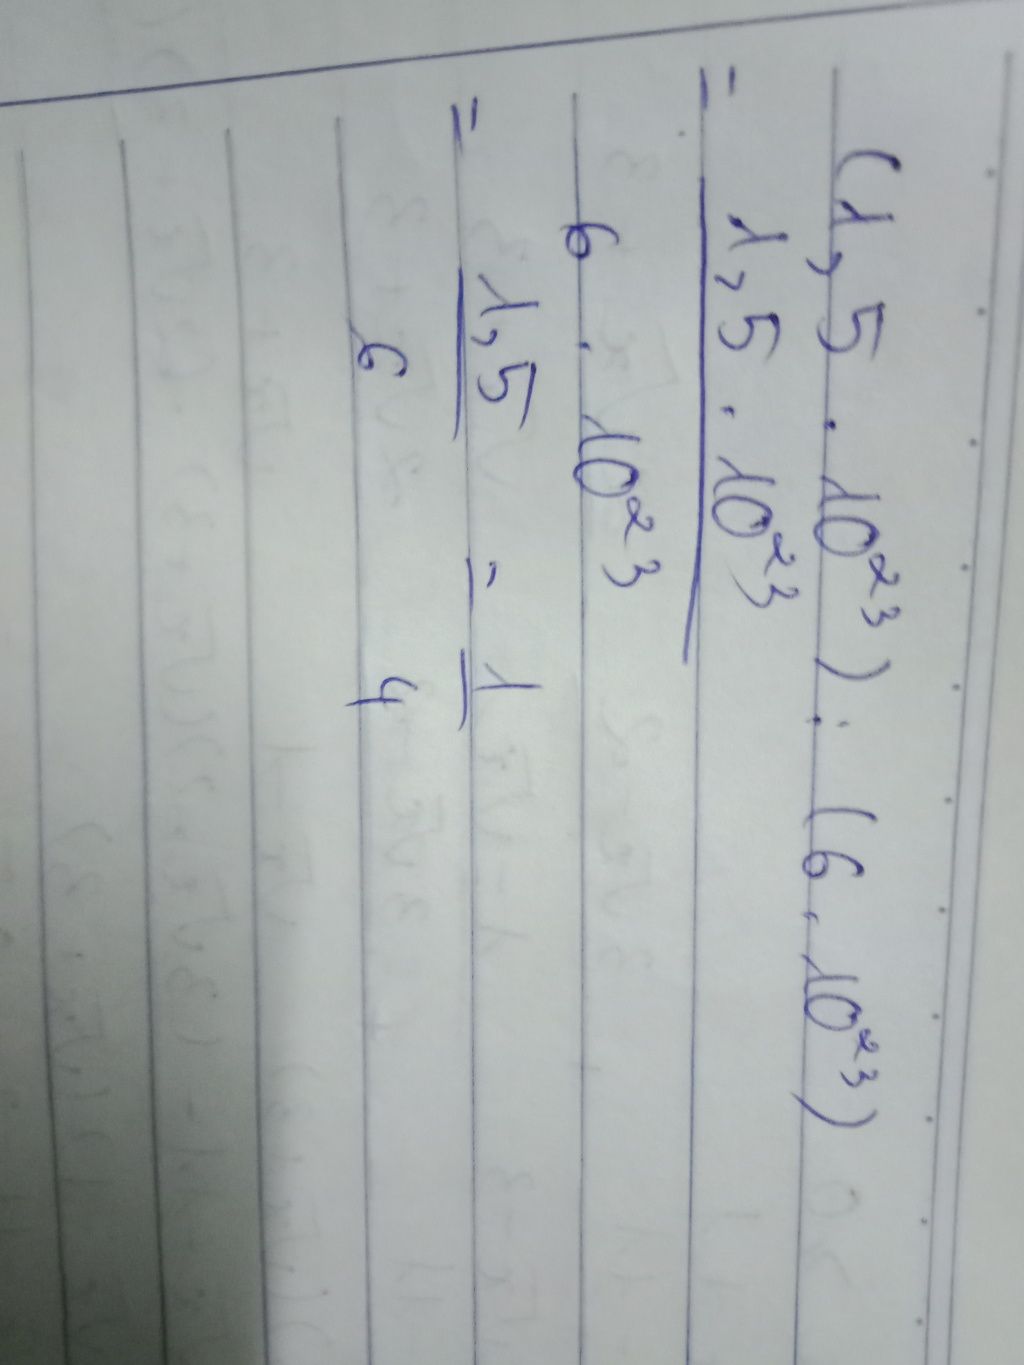 (1,5 . 10²³) : (6 . 10²³)
= 1,5 . 10²³
6 . 10²³
= 1,5 = 1
6 4